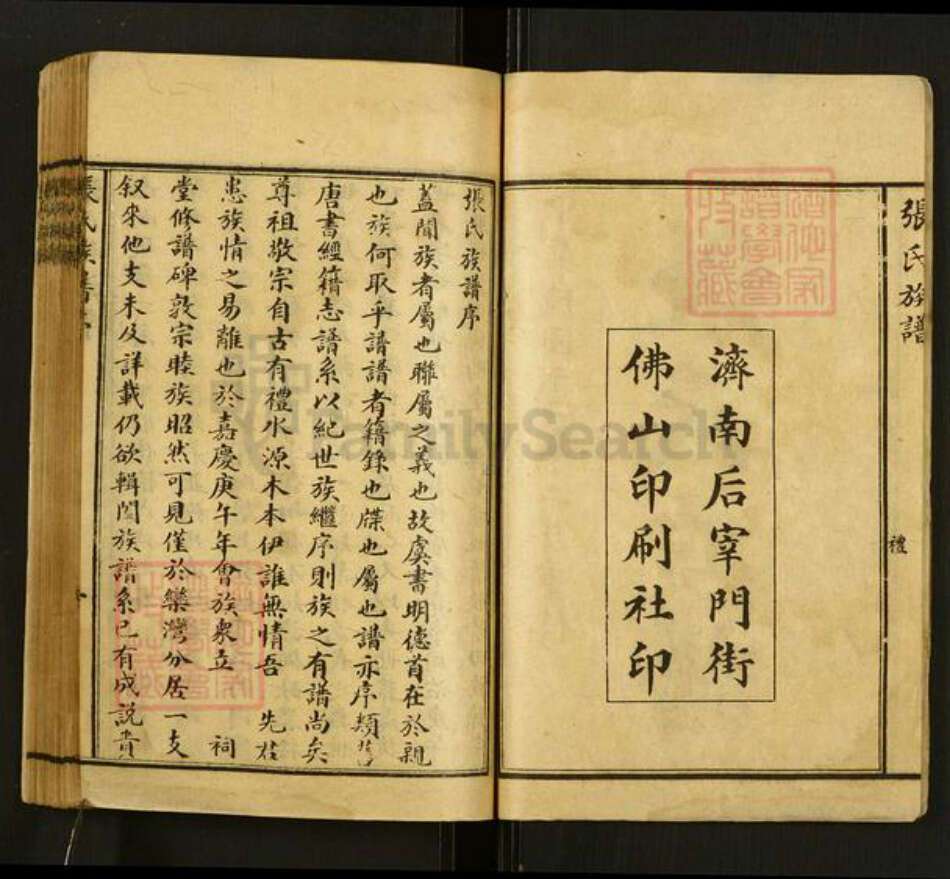 張氏族譜
禮
濟南后宰門街
佛山印刷社印
張氏族譜序
蓋聞族者屬也聯屬之義也故虞書明德首在於親
也族何取乎譜譜者籍錄也牒也屬也譜亦序類
唐書經籍志譜系以紀世族繼序則族之有譜尚矣
尊祖敬宗自古有禮水源木本伊誰無情吾 先君
患族情之易離也於嘉慶庚午年會族衆立 祠
堂修譜碑敦宗睦族昭然可見僅於欒灣分居一支
叙來他支未及詳載仍欲輯闔族譜系已有成説貴
張氏族譜
FamilySearch